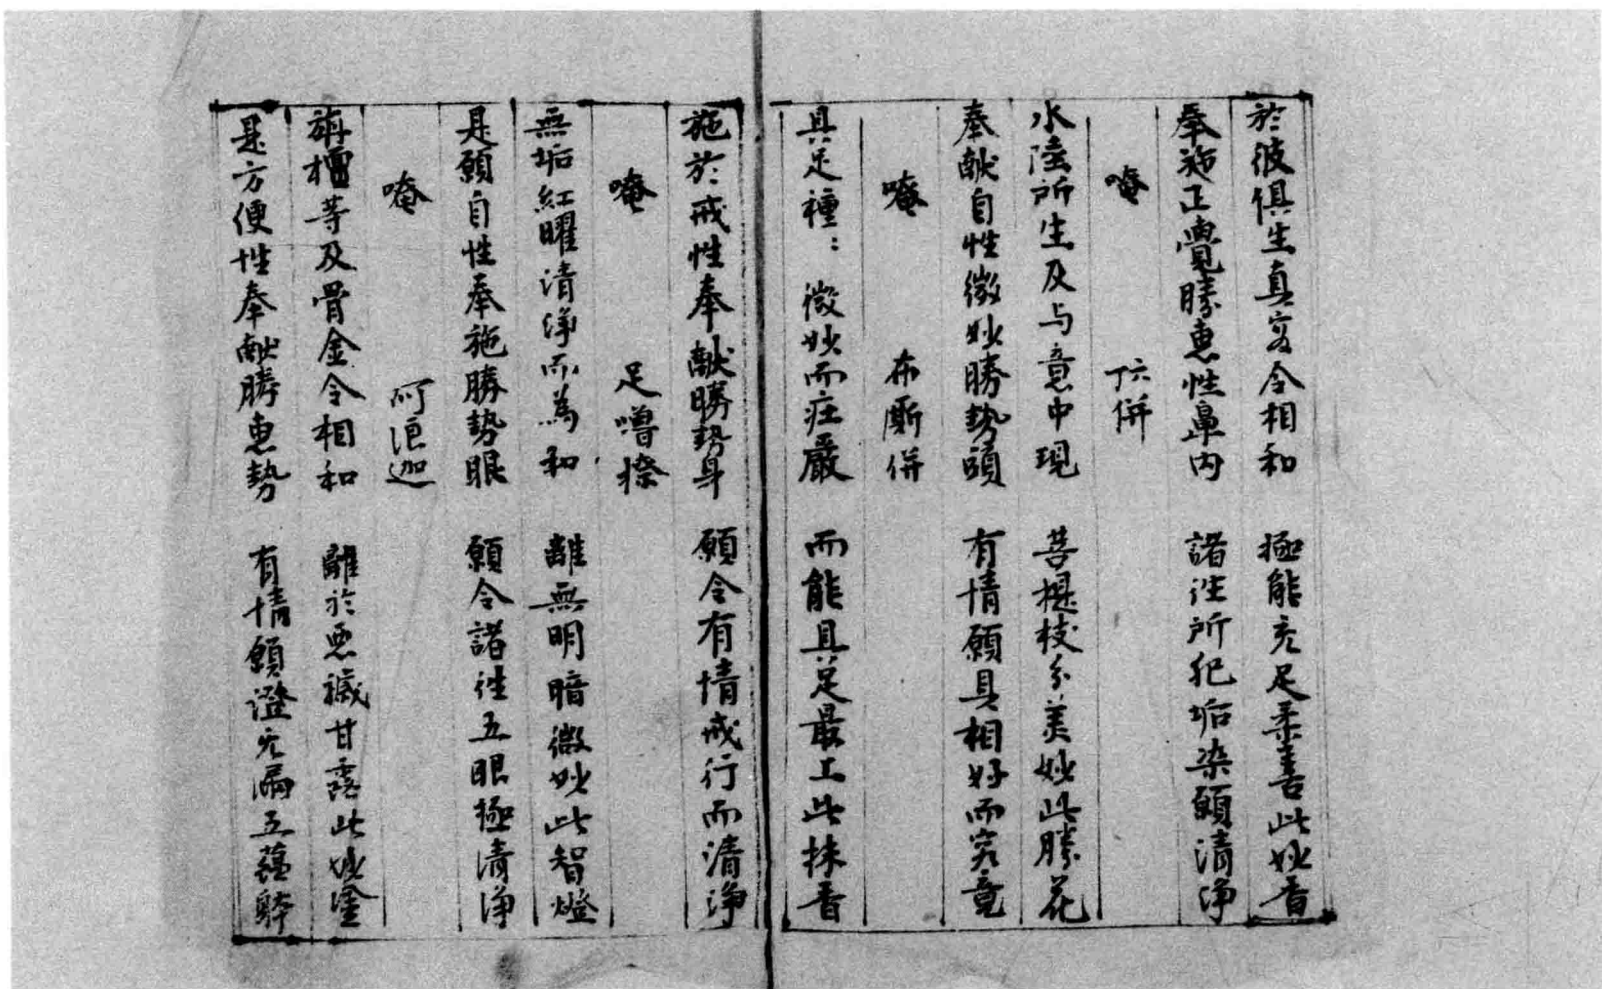 於彼俱生真实令相和 極能充足柔善此妙香
奉施正覺勝惠性鼻内 諸徃所犯垢染願清淨
唵 併
水陸所生及与意中現 菩提枝分美妙此勝花
奉献自性微妙勝勢頭 有情願具相好而究竟
唵 布厮併
具足種〻微妙而庄嚴 而能具足最上此抹香
施於戒性奉献勝势身 願令有情戒行而清淨
唵 足嚕捺
無垢紅曜清淨而為和 離無明暗微妙此智燈
是願自性奉施勝勢眼 願令諸徃五眼極清淨
唵 阿浪迦
旃檀等及骨金令相和 離於惡穢甘露此妙塗
是方便性奉献勝惠勢 有情願澄无漏五蘊躰